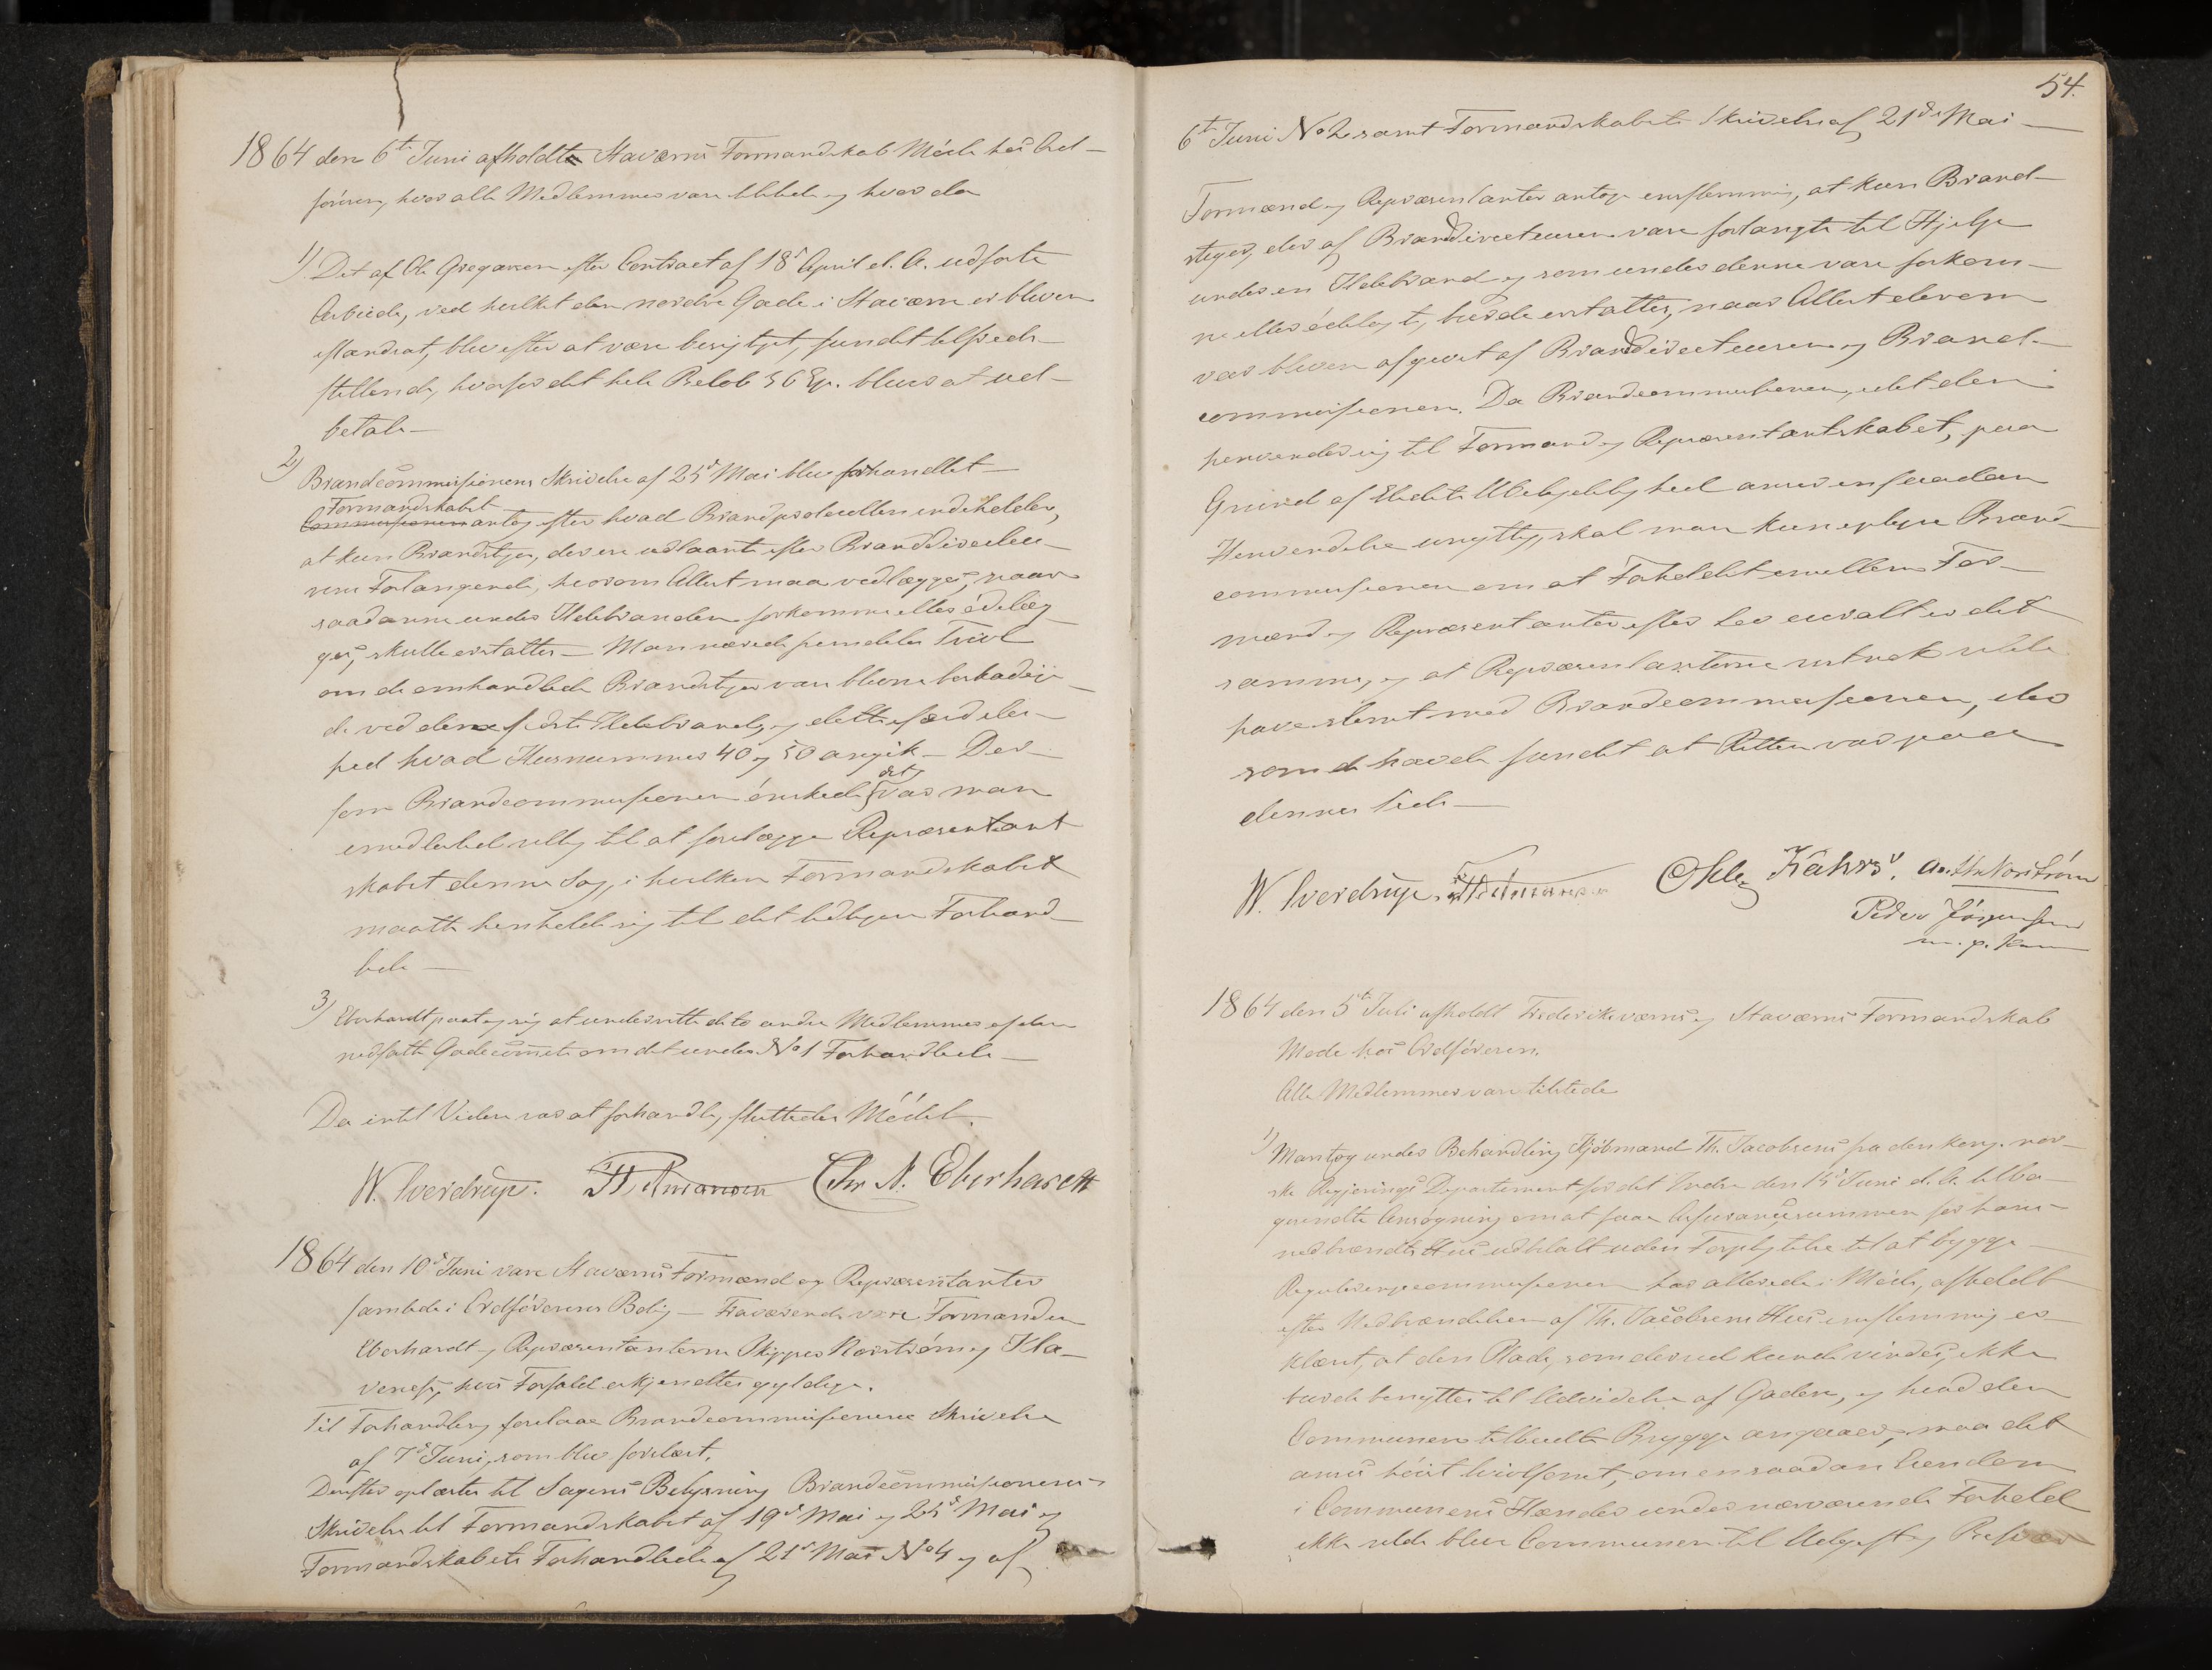 1864 den 6te Juni afholdte Staværns Formandskab Möde hos Ord-
föreren, hvor alle Medlemmer vare tilstede og hvor da
1) Det af Ole Gregarsen efter Contract af 18de April d. A. udförte
Arbeide, ved hvilket den nordre Gade i Staværn er bleven
istandsat, blev efter at være besigtiget, fundet tilfreds-
stillende, hvorfor det hele Belöb 36 Sp. bliver at ud-
betale —
2) Brandcommissionens Skrivelse af 25de Mai blev forhandlet —
Formandskabet
Commissionen antog efter hvad Brandprotocollen indeholder,
at kun Brandstiger, der ere udlaante efter Branddirecteu-
rens Forlangende, hvorom Attest maa vedlægges, naar
saadanne under Ildebranden forkomme eller ödelæg-
ges, skulle erstattes — Man nærede fremdeles Tvivl
om de omhandlede Brandstiger vare blevne beskadige-
de ved den sidste Ildebrand, og dette isærdeles-
hed hvad Husnummer 40 og 50 angik — Der-
det,
som Brandcommissionen önskede var man
imidlertid villig til at forelægge Repræsentant
skabet denne Sag, i hvilken Formandskabet
maatte henholde sig til det tidligere Forhand-
lede —
3) Eberhardt paatog sig at underrette de to andre Medlemmer af den
nedsatte Gadecomite om det under No 1 Forhandlede —
Da intet Videre var at forhandle, sluttedes Mödet.
W. Sverdrup. Chr N. Eberhardt
1864 den 10de Juni vare Staværns Formænd og Repræsentanter
samlede i Ordförerens Bolig — Fraværende vare Formanden
Eberhardt og Repræsentanterne Skipper Norström og Kla-
veness, hvis Forfald erkjendtes gyldige.
Til Forhandling forelaae Brandcommissionens Skrivelse
af 7de Juni, som blev forelæst.
Derefter oplæstes til Sagens Belysning Brandcommissionens
Skrivelse til Formandskabet af 19de Mai og 25de Mai og
Formandskabets Forhandlede af 21de Mai No 4 og af
54.
6te Juni No 2 samt Formandskabets Skrivelse af 21de Mai —
Formænd og Repræsentanter antog enstemmig, at kun Brand-
stiger, der af Branddirecteuren vare forlangte til Hjelp
under en Ildebrand og som under denne vare forkom-
ne eller ödelagte, burde erstattes, naar Attest derom
var bleven afgivet af Branddirecteuren og Brand-
commissionen. Da Brandcommissionen, uden
henvender sig til Formand og Repræsentantskabet, paa
Grund af anser en saadan
Henvendelse unyttig, skal man kun oplyse Brand-
commissionen om at Forholdet imellem For-
mænd og Repræsentanter efter Lov er det
samme, og at Repræsentanterne vilde
have stemt med Brandcommissionen, der-
som de havde fundet at Retten var paa
dennes Side —
W. Sverdrup. Kahrs. Norström
Peder Jörgensen
m. p. Pen
1864 den 5te Juli afholdt Frederiksværns og Staværns Formandskab
Möde hos Ordföreren.
Alle Medlemmer vare tilstede
1) Man tog under Behandling Kjöbmand Th. Jacobsens fra den kong. nor-
ske Regjerings Departement for det Indre den 15de Juni d. A. tilba-
gesendte Ansögning om at faae Assurancesummen for hans
nedbrændte Huus udbetalt uden Forpligtelse til at bygge
Reguleringscommissionen har allerede i Möde, afholdt
efter Nedbrændelsen af Th. Jacobsens Huus enstemmig er-
klæret, at den Plads, som derved kunde vindes, ikke
burde benyttes til Udvidelse af Gaden, og hvad den
Communen tilbudte Brygge angaaer, maa det
ansees höist tvivlsomt, om en saadan Eiendom
i Communens Hænder under nærværende Forhold
ikke vilde blive Communen til Udgift og